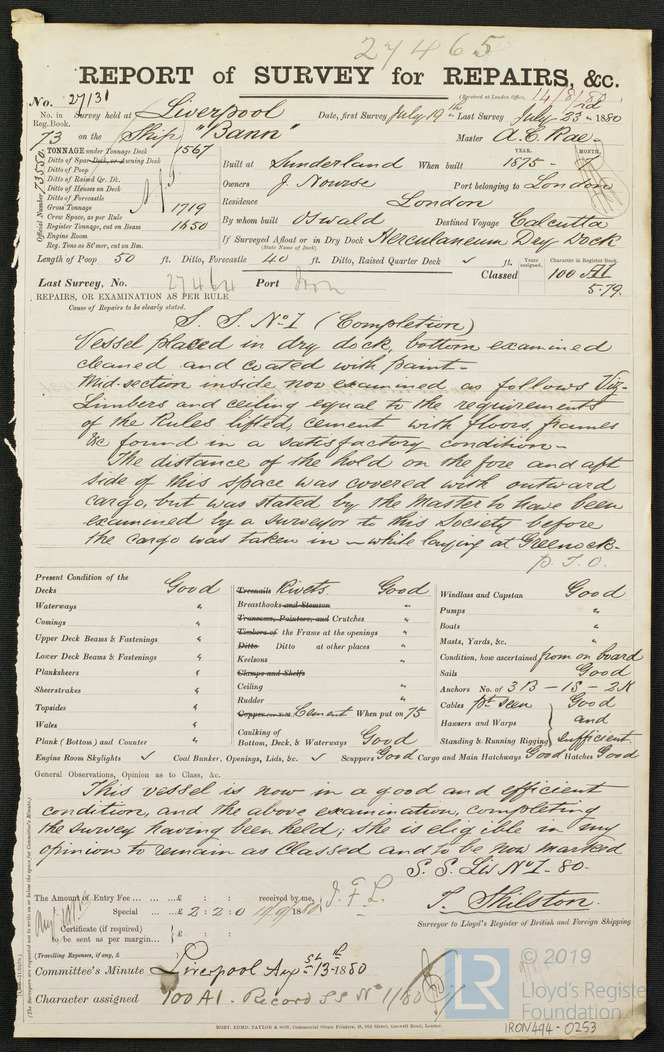 27465
REPORT of SURVEY for REPAIRS, &c.
(Received at London Office, 14/8/80
No. 27131
No. in Reg. Book. 73 Survey held at Liverpool Date, first Survey July 19th Last Survey July 23rd 1880
on the Ship "Bann" Master A. C. Rae
Official Number 73550
TONNAGE under Tonnage Deck 1567
Ditto of Spar Deck, or Awning Deck
Ditto of Poop
Ditto of Raised Qr. Dk.
Ditto of Houses on Deck
Ditto of Forecastle
Gross Tonnage 1719
Crew Space, as per Rule
Register Tonnage, cut on Beam 1650
Engine Room
Reg. Tons as St'mer, cut on Bm.
YEAR. MONTH.
Built at Sunderland When built 1875 - 7
Owners J. Nourse Port belonging to London
Residence London
By whom built Oswald Destined Voyage Calcutta
If Surveyed Afloat or in Dry Dock Herculaneum Dry Dock
(State Name of Dock)
Length of Poop 50 ft. Ditto, Forecastle 40 ft. Ditto, Raised Quarter Deck ✓ ft.
Years assigned. Character in Register Book.
Classed 100 A1
5.79.
Last Survey, No. 27464 Port Iron
REPAIRS, OR EXAMINATION AS PER RULE
Cause of Repairs to be clearly stated.
S. S. No 1 (Completion)
Vessel placed in dry dock, bottom examined
cleaned and coated with paint -
Mid-section inside now examined as follows Viz-
Limbers and ceiling equal to the requirements
of the Rules lifted, cement with floors, frames
&c found in a satisfactory condition -
The distance of the hold on the fore and aft
side of this space was covered with outward
cargo, but was stated by the Master to have been
examined by a surveyor to this Society before
the cargo was taken in - while laying at Greenock -
P. T. O.
Present Condition of the
Decks Good
Waterways "
Comings "
Upper Deck Beams & Fastenings "
Lower Deck Beams & Fastenings "
Planksheers "
Sheerstrakes "
Topsides "
Wales "
Plank (Bottom) and Counter "
Engine Room Skylights ✓
Treenails Rivets Good
Breasthooks and Stemson "
Transoms, Pointers, and Crutches "
Timbers of the Frame at the openings "
Ditto Ditto at other places "
Keelsons "
Clamps and Shelfs
Ceiling "
Rudder "
Cement When put on 75
Caulking of
Bottom, Deck, & Waterways Good
Coal Bunker, Openings, Lids, &c. ✓
Windlass and Capstan Good
Pumps "
Boats "
Masts, Yards, &c. "
Condition, how ascertained from on board
Sails Good
Anchors No. of 3B - 1S - 2K
Cables pt seen Good
Hawsers and Warps and
Standing & Running Rigging Sufficient
Scuppers Good Cargo and Main Hatchways Good Hatches Good
General Observations, Opinion as to Class, &c.
This vessel is now in a good and efficient
condition, and the above examination, completing
the survey having been held; she is eligible in my
opinion to remain as Classed and to be now marked
S. S. Liv No 1 - 80 -
The Amount of Entry Fee ... ... £ : : received by me, J. F. L.
Special ... ... £ 2 : 2 : 0
Certificate (if required) to be sent as per margin... £ : :
(Travelling Expenses, if any, £ )
T. Shilston.
Surveyor to Lloyd's Register of British and Foreign Shipping
Committee's Minute Liverpool Augst 13th 1880
Character assigned 100 A1. Record SS No 1/80
(The Surveyors are requested not to write on or below the space for Committee's Minute.)
RORY. EDMD. TAYLOR & SON, Commercial Steam Printers, 19, Old Street, Goswell Road, London.
© 2019
LR
Lloyd's Registe
Foundation
IRON494-0253